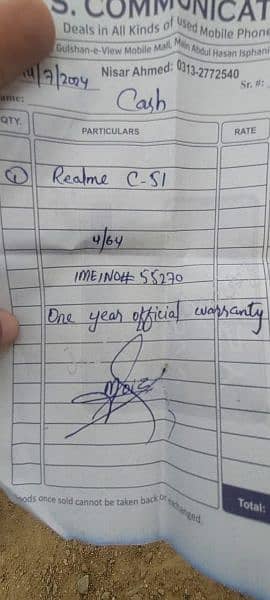 S. COMMUNICAT
Deals in All Kinds of Used Mobile Phone
Gulshan-e-View Mobile Mall, Main Abdul Hasan Isphani
Nisar Ahmed: 0313-2772540
14/7/2024
Sr. #:
ame:
Cash
QTY.
PARTICULARS
RATE
1 Realme C-51
4/64
IMEINO# 55270
One year official warranty
oods once sold cannot be taken back or exchanged.
Total: